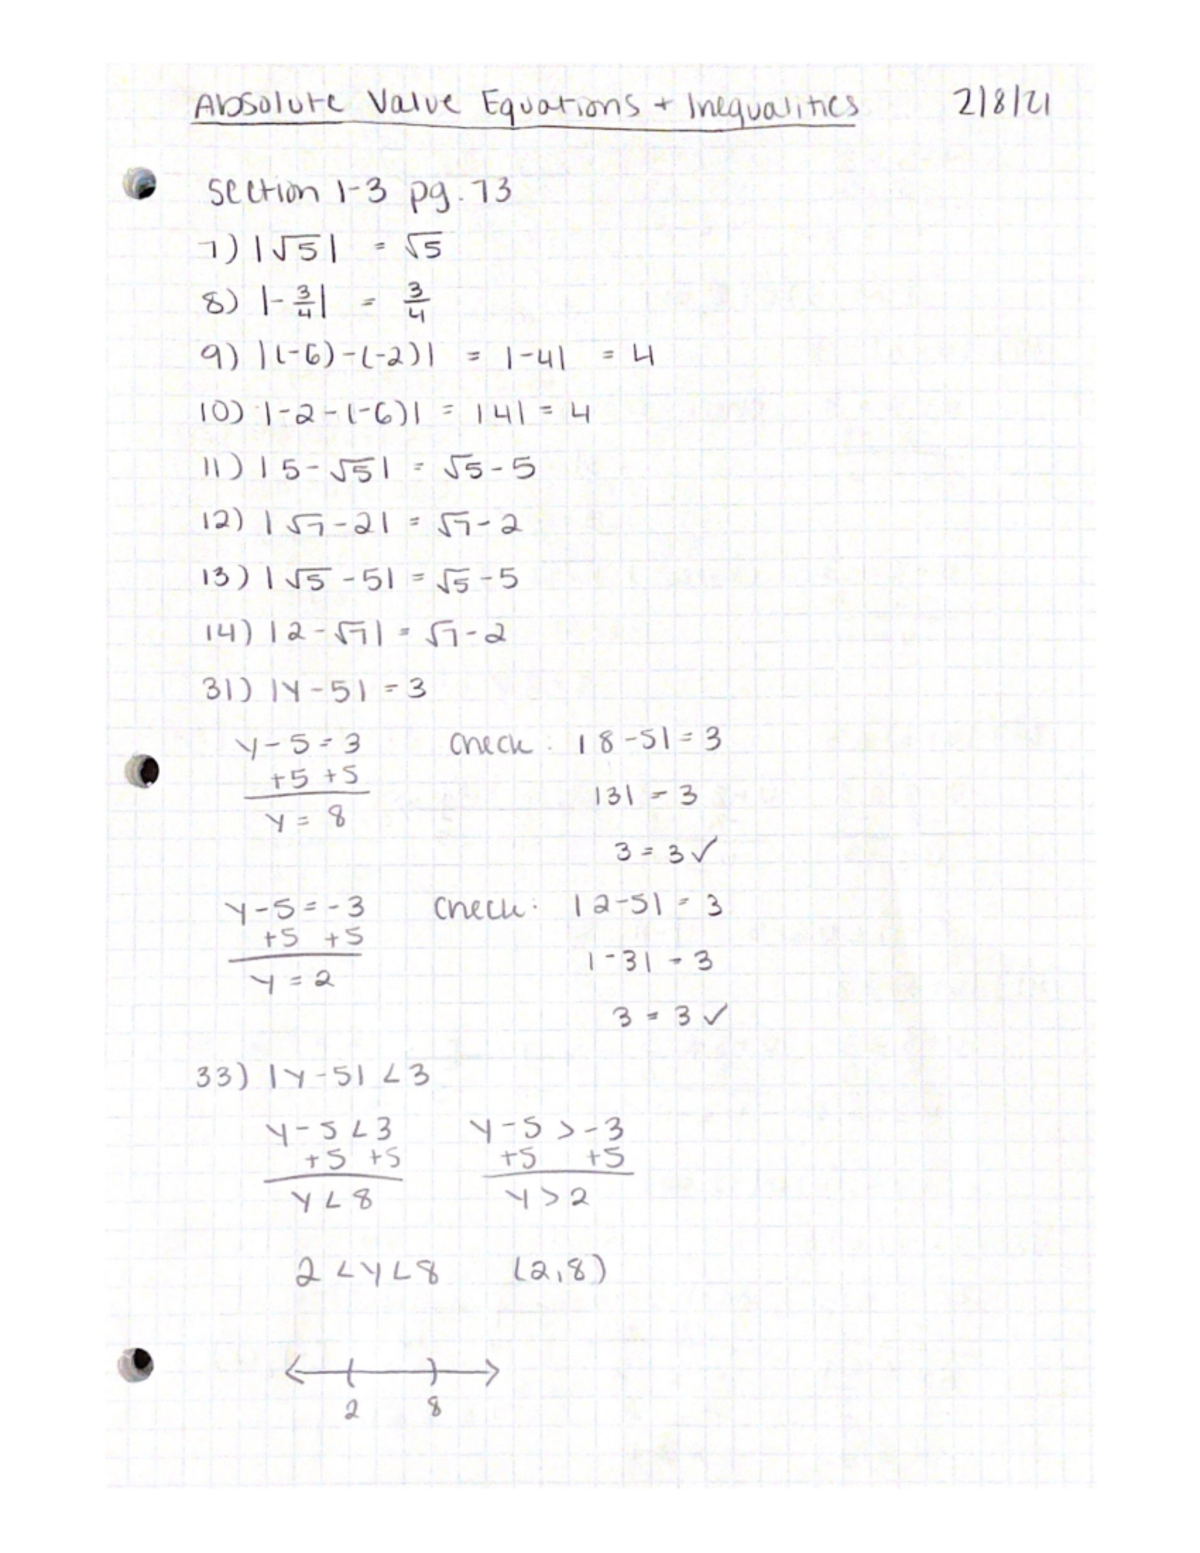 Absolute Value Equations + Inequalities 2/8/21
Section 1-3 pg. 73
7) |√5| = √5
8) |-3/4| = 3/4
9) |(-6)-(-2)| = |-4| = 4
10) |-2-(-6)| = |4| = 4
11) |5-√5| = √5-5
12) |√7-2| = √7-2
13) |√5-5| = √5-5
14) |2-√7| = √7-2
31) |y-5| = 3
y-5=3 Check: |8-5| = 3
+5 +5 |3| = 3
y = 8
3 = 3 ✓
y-5=-3 Check: |2-5| = 3
+5 +5
y = 2 |-3| = 3
3 = 3 ✓
33) |y-5| < 3
y-5<3 y-5>-3
+5 +5 +5 +5
y<8 y>2
2<y<8 (2,8)
2 8